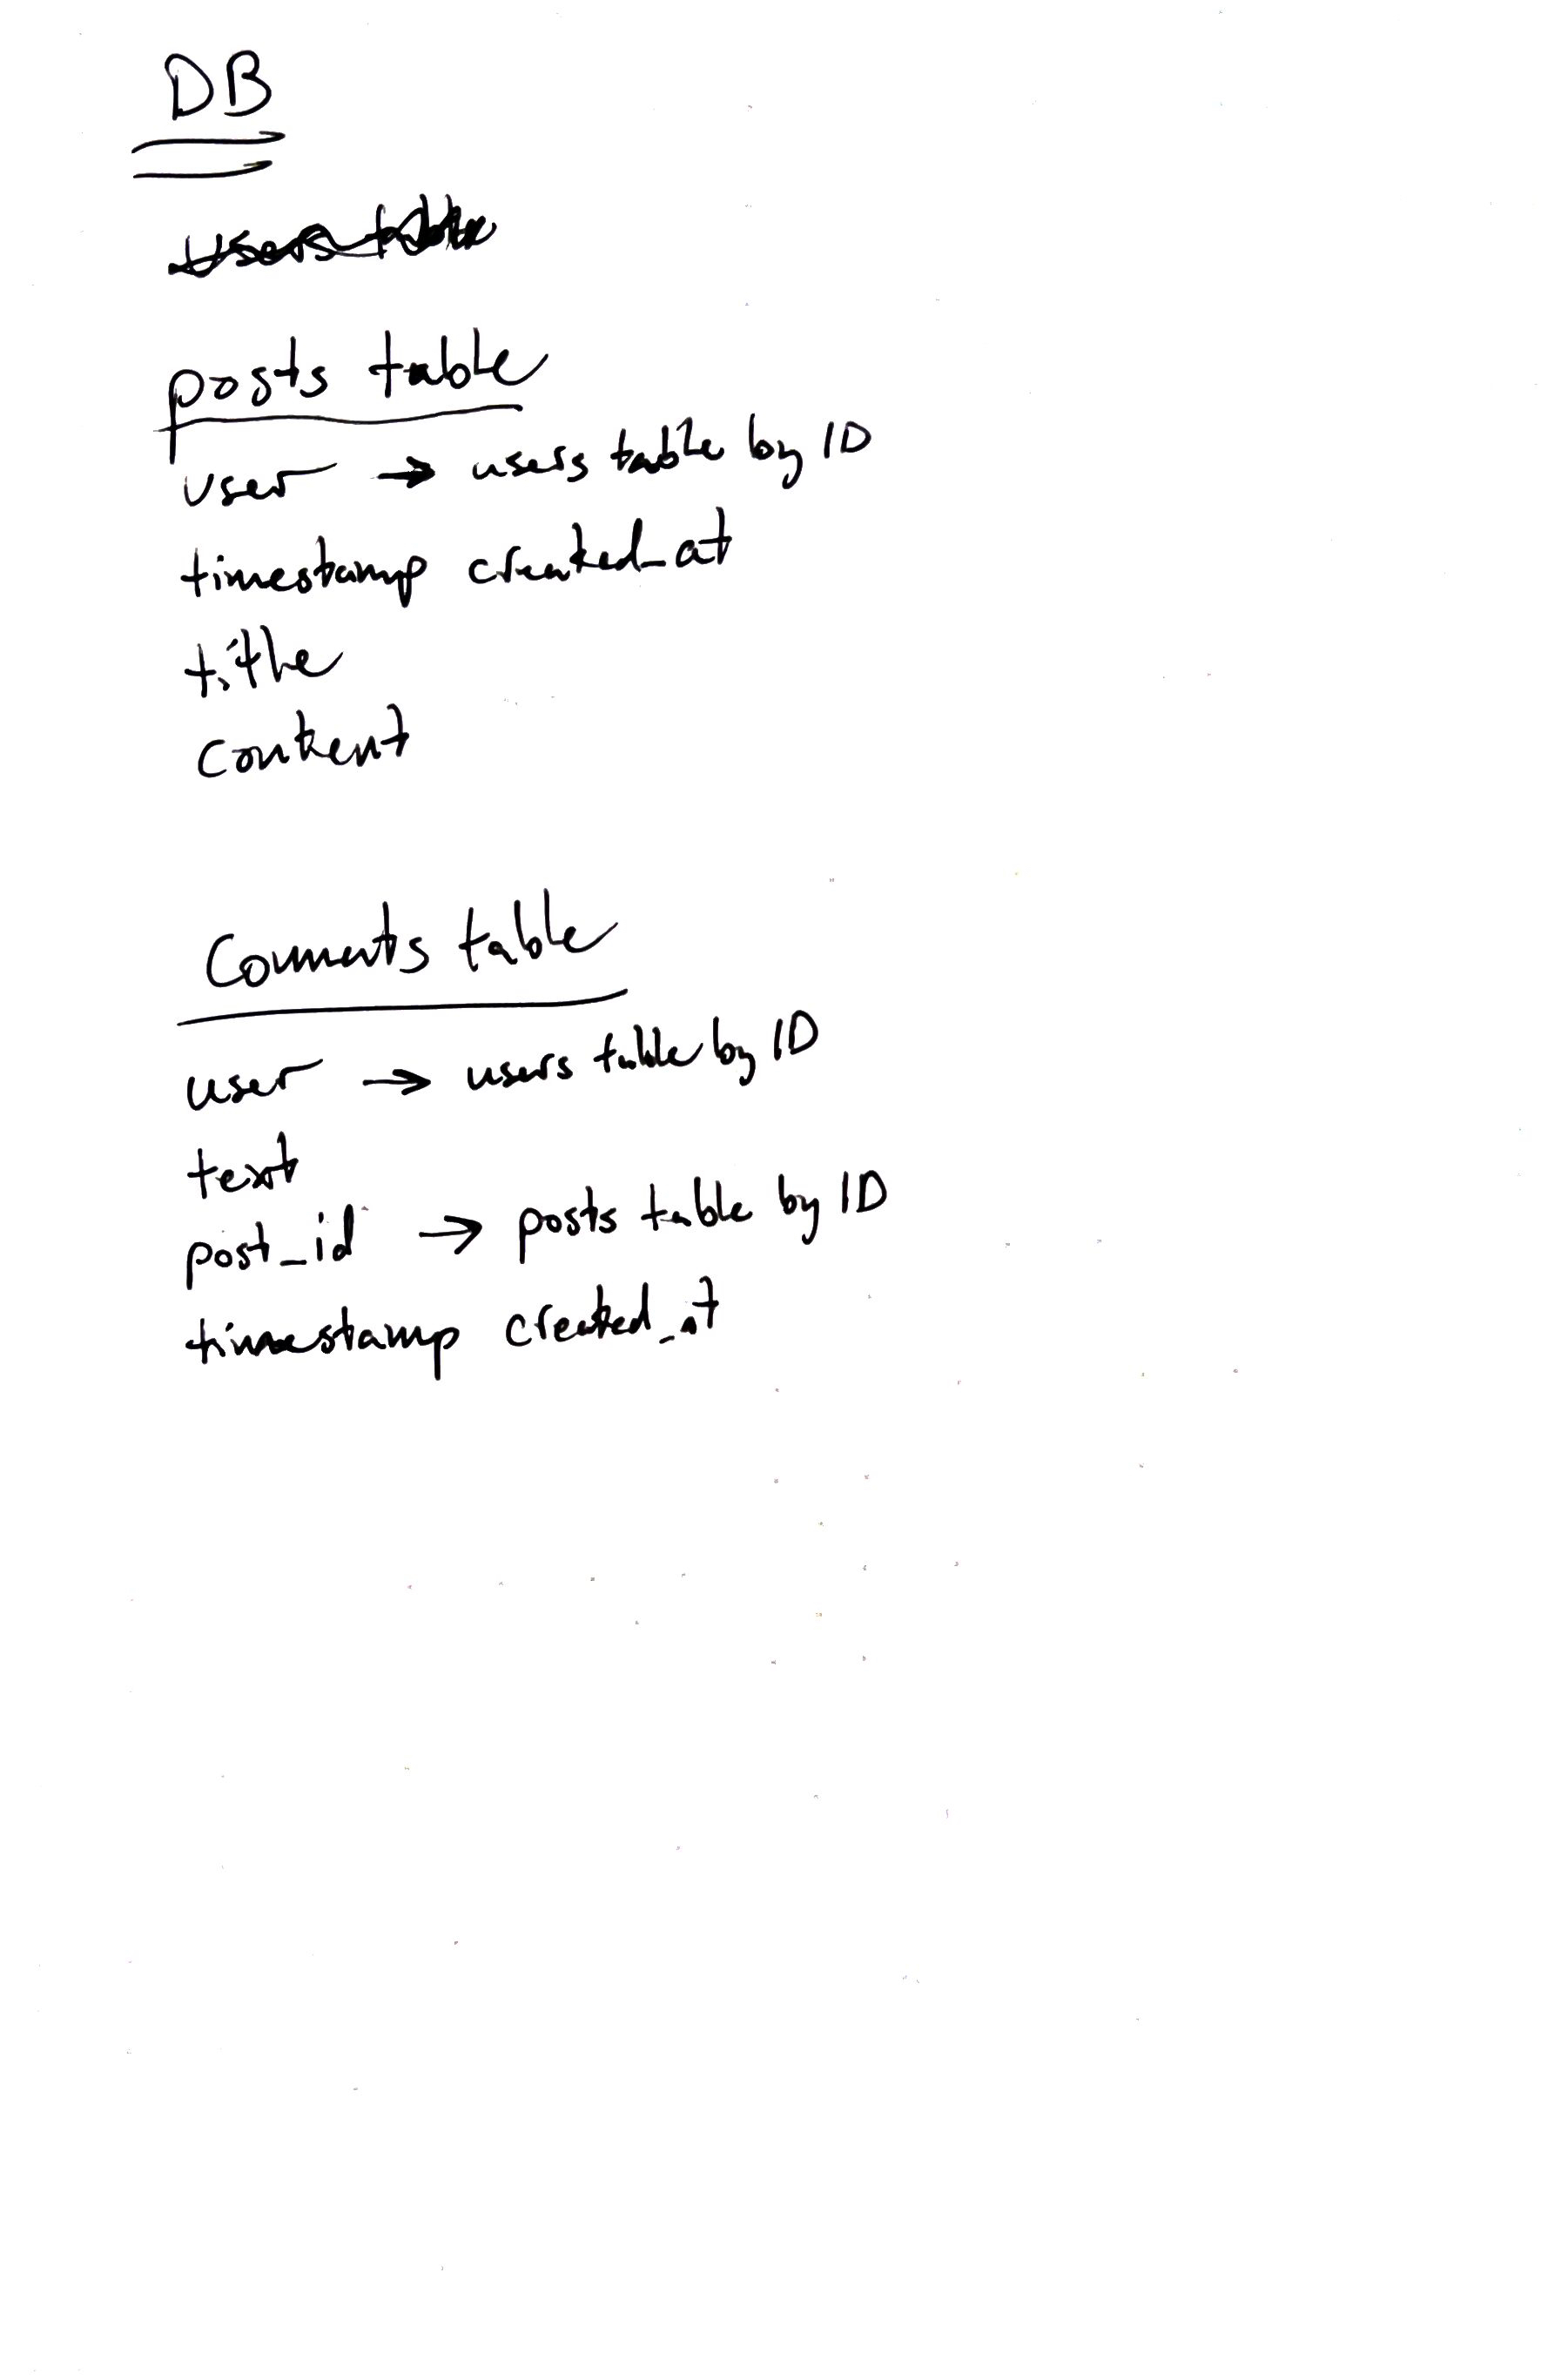 DB
users table
posts table
user → users table by ID
timestamp created_at
title
content
Comments table
user → users table by ID
text
post_id → posts table by ID
timestamp created_at